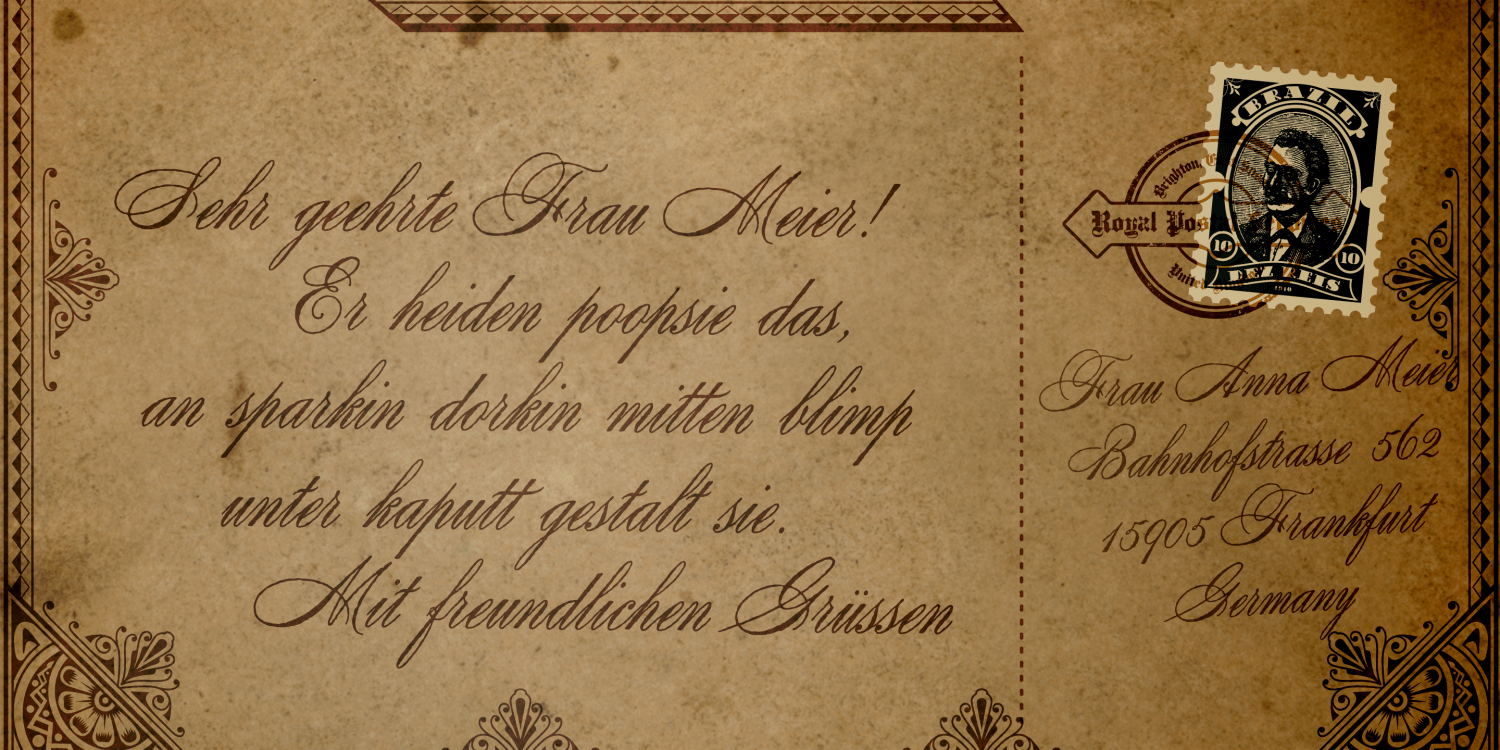 Sehr geehrte Frau Meier!
Er heiden poopsie das,
an sparkin dorkin mitten blimp
unter kaputt gestalt sie.
Mit freundlichen Grüssen
BRAZIL
Brighton,
Royal
10 10
DEZ REIS
1910
Frau Anna Meier
Bahnhofstrasse 562
15905 Frankfurt
Germany